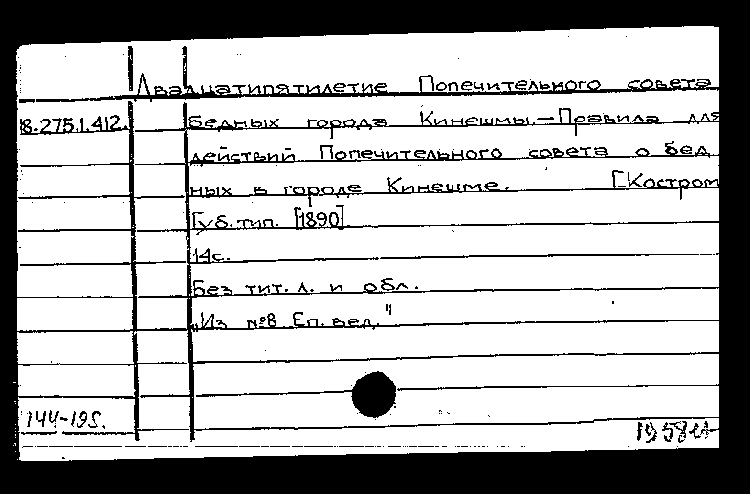 Двадцатипятилетие Попечительного совета
8.275.1.412. бедных города Кинешмы.—Правила для
действий Попечительного совета о бед
ных в городе Кинешме. [Костром
Губ. тип. [1890].
14с.
Без тит. л. и обл.
„Из №8 Еп. вед."
144-195.